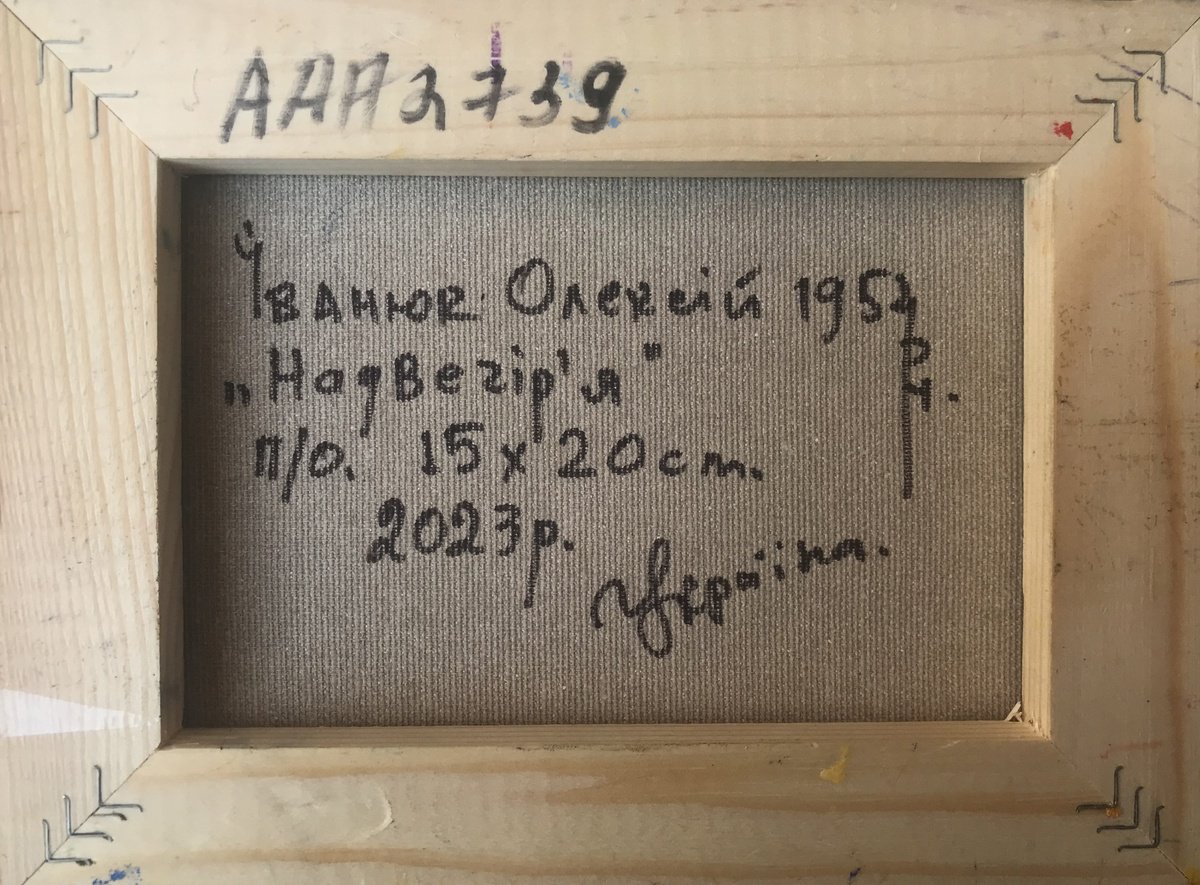 ААА2739
Іванюк Олексій 1954
р.н.
„Надвечір'я"
п/о. 15х20см.
2023р.
Україна.